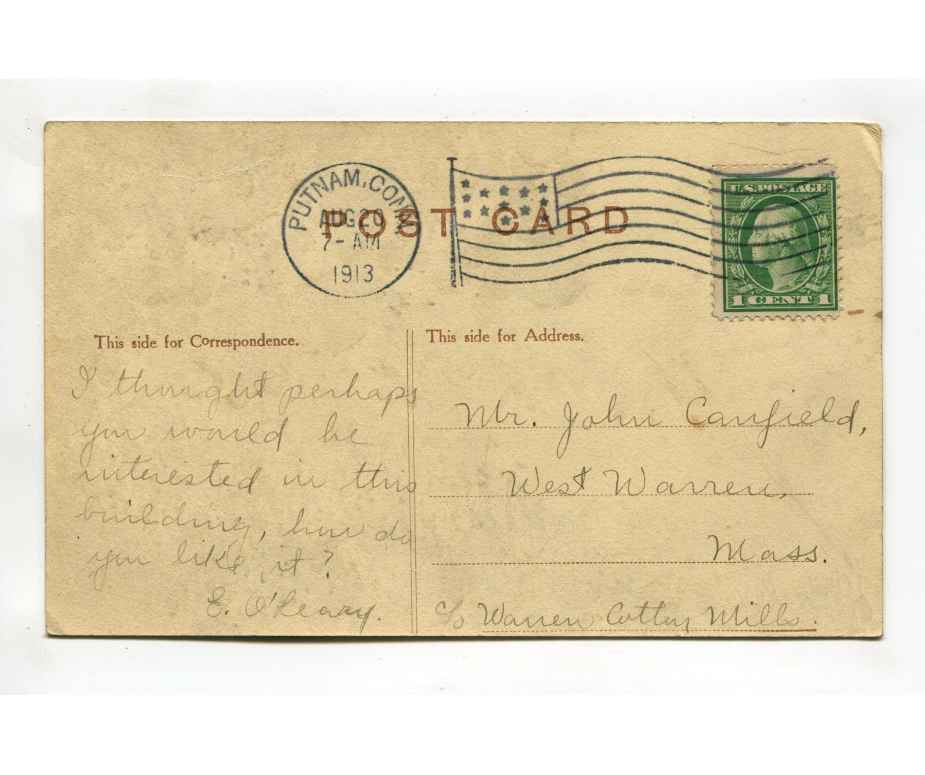 PUTNAM, CONN.
AUG 29
7-AM
1913
POST CARD
U.S. POSTAGE
1 CENT 1
This side for Correspondence.
This side for Address.
I thought perhaps
you would be
interested in this
building, how do
you like it?
E. O'Leary.
Mr. John Canfield,
West Warren,
Mass.
c/o Warren Cotton Mills.